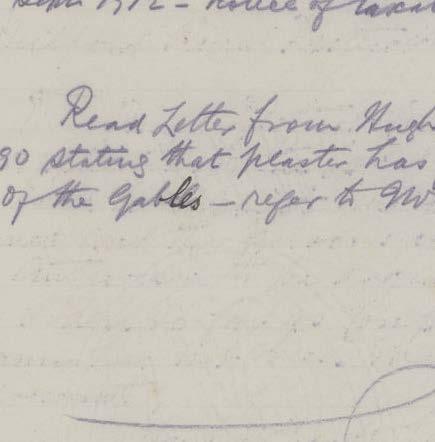 Sept 1912 – Notice of taxat
Read Letter from Hugh
90 stating that plaster has
of the Gables – refer to Mr